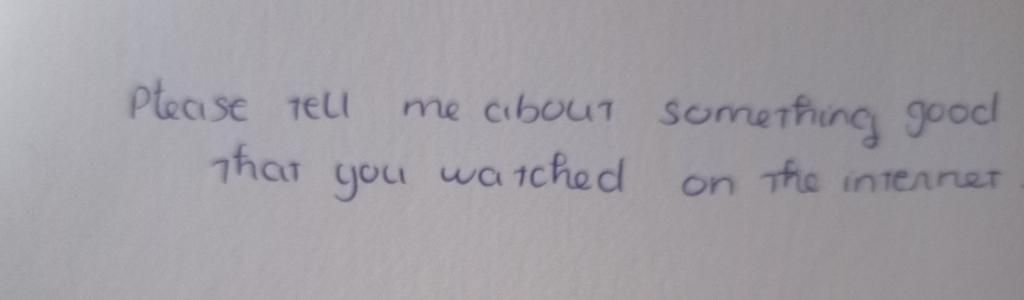 Please tell me about something good
that you watched on the internet.